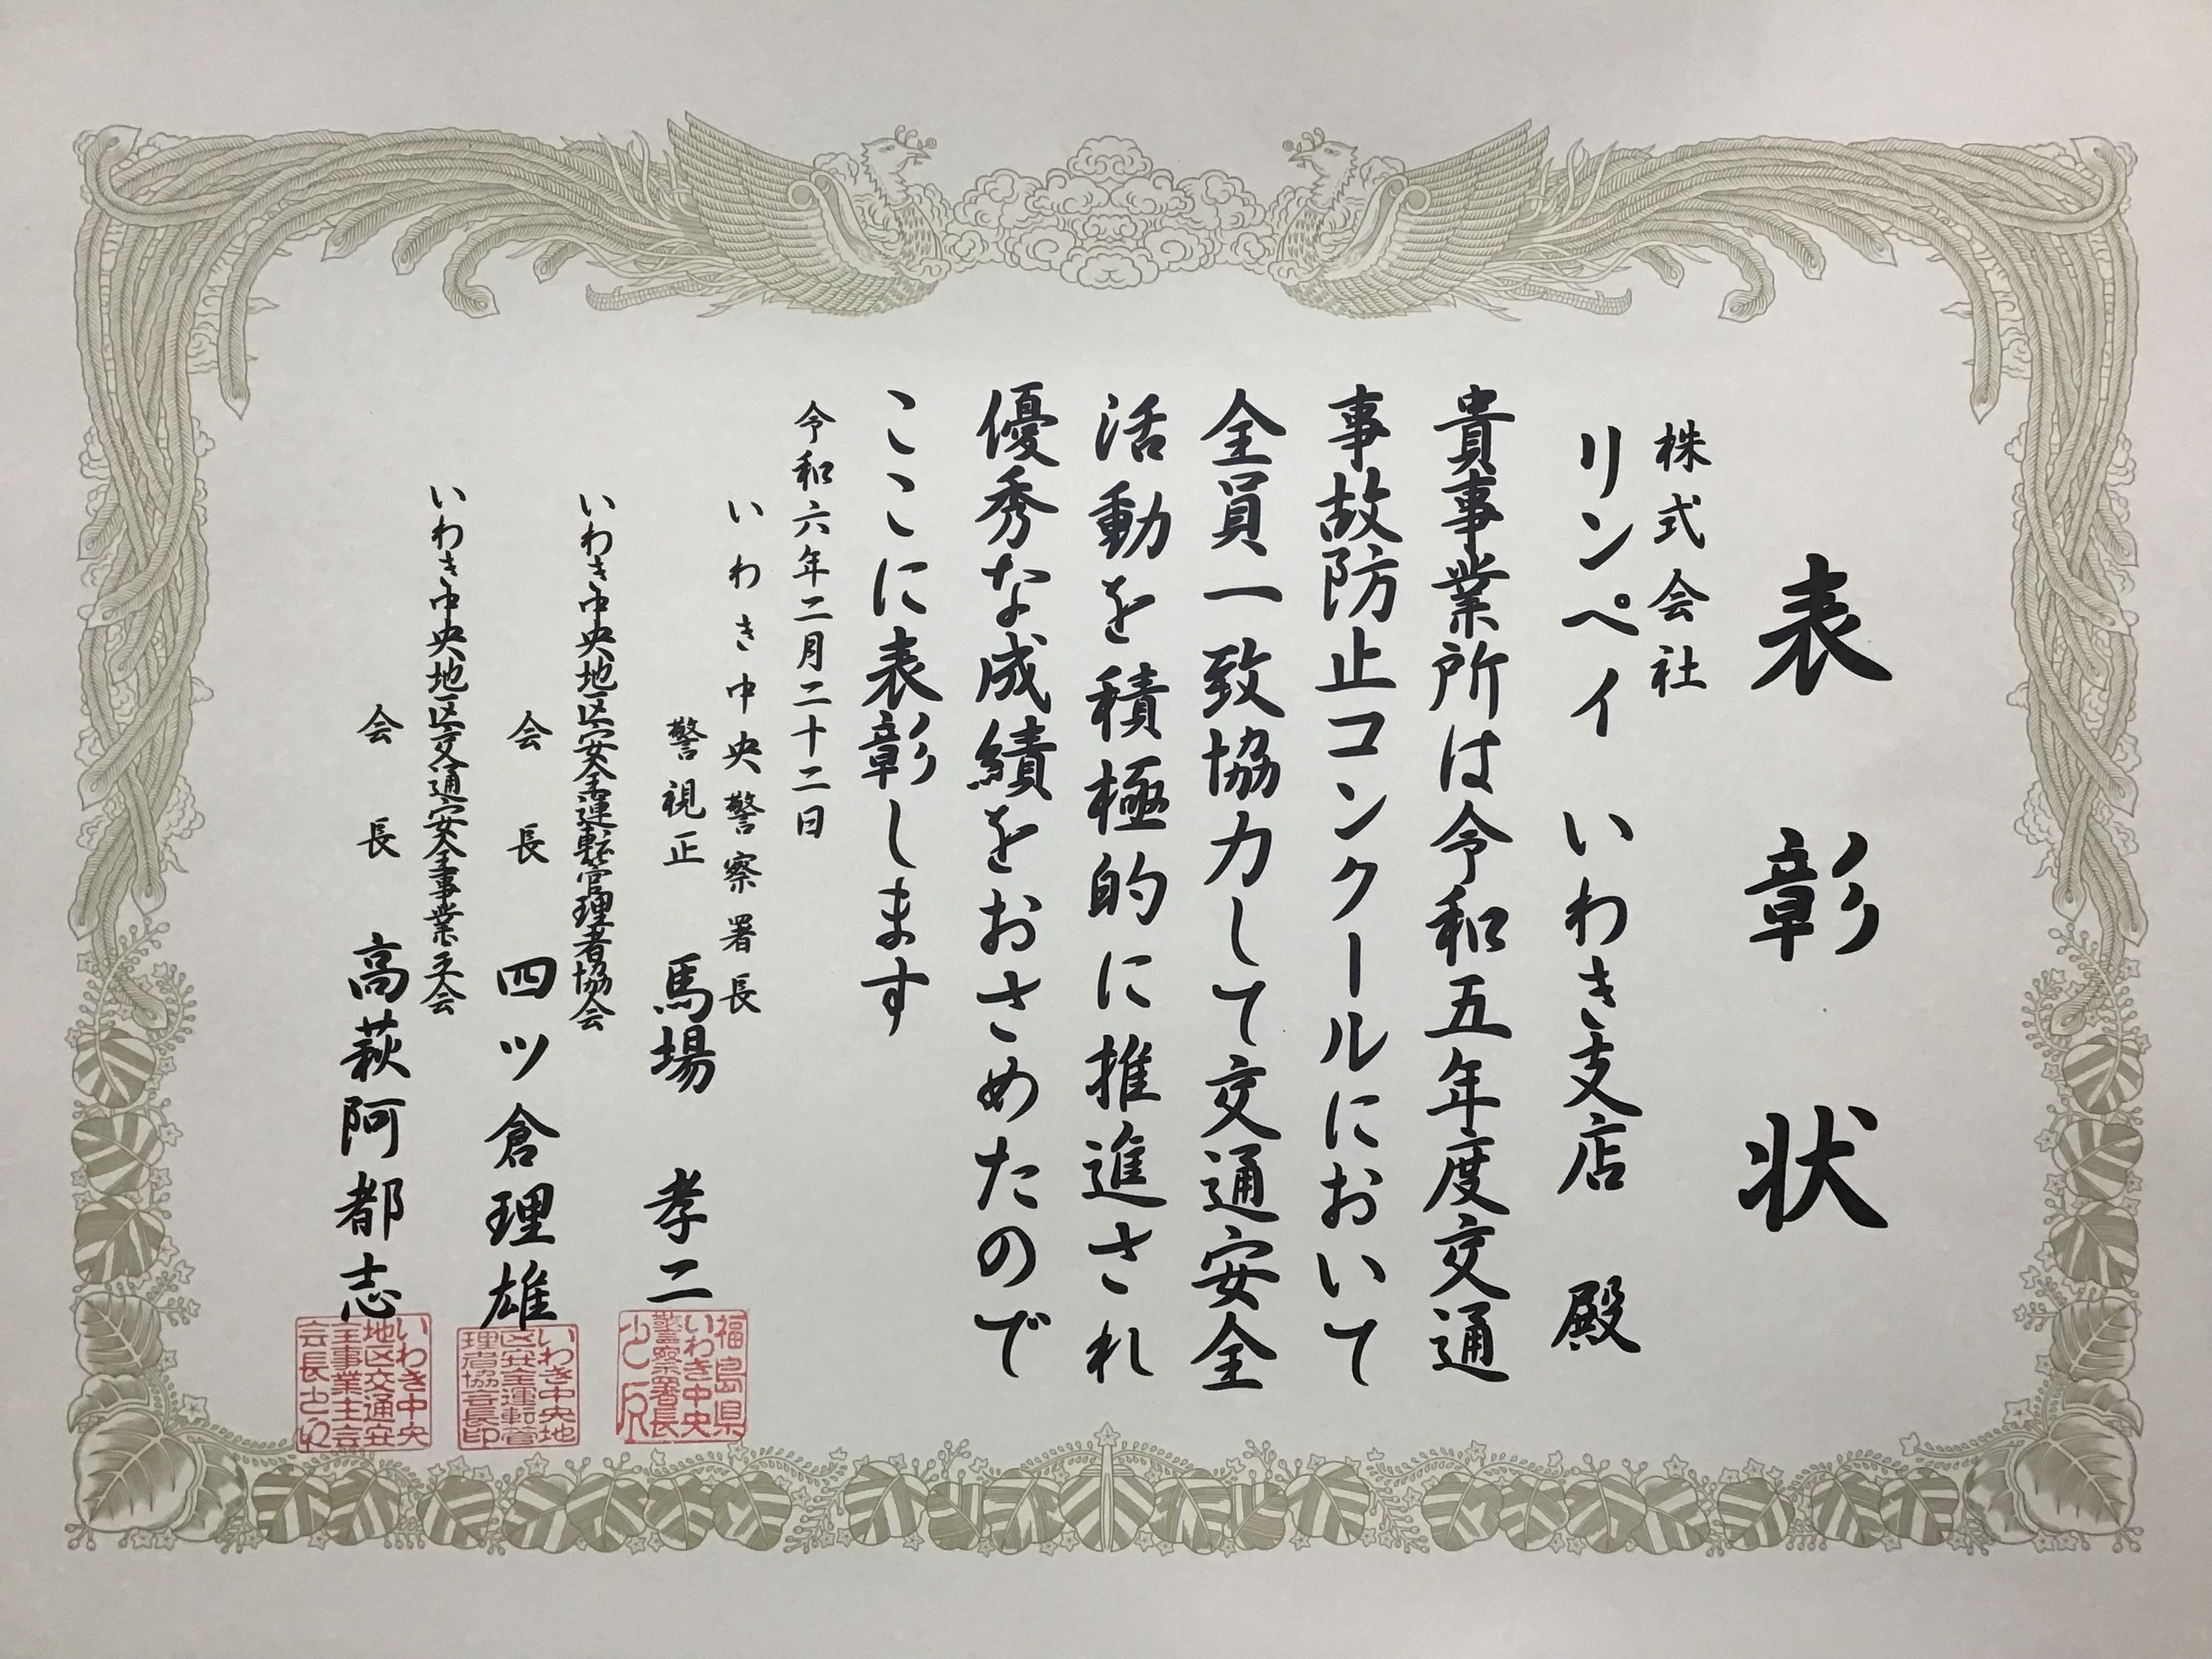 表彰状
株式会社
リンペイ いわき支店 殿
貴事業所は令和五年度交通
事故防止コンクールにおいて
全員一致協力して交通安全
活動を積極的に推進され
優秀な成績をおさめたので
ここに表彰します
令和六年二月二十二日
いわき中央警察署長
警視正 馬場 孝二
いわき中央地区安全運転管理者協会
会長 四ツ倉理雄
いわき中央地区交通安全事業主会
会長 高萩阿都志
福島県
いわき中央
警察署長
之印
いわき中央地
区安全運転管
理者協会長印
いわき中央
地区交通安
全事業主会
会長之印